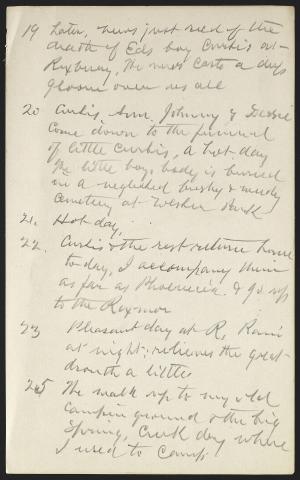 19 Later, news just recd of the
death of Eds boy Curtis at
Roxbury, The news casts a days
gloom over us all
20 Curtis, Ann, Johnny &
Come down to the funeral
of little Curtis, A hot day
The little boys body is buried
in a neglected brushy & weedy
Cemetery at
21. Hot day,
22. Curtis & the rest return home
to day, I accompany them
as far as Phoenicia & go up
to the Roxmor
23 Pleasant day at R, Rain
at night; relieves the great
drouth a little
25 The walk up to my old
Camping ground & the big
Spring, day where
I used to Camp.